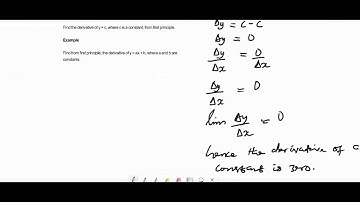 Find the derivative of y = c, where c is a constant, from first principle.
Example
Find from first principle, the derivative of y = ax + b, where a and b are
constants.
Δy = C - C
Δy = 0
Δy/Δx = 0/Δx
Δy/Δx = 0
lim Δy/Δx = 0
hence the derivative of c
constant is zero.